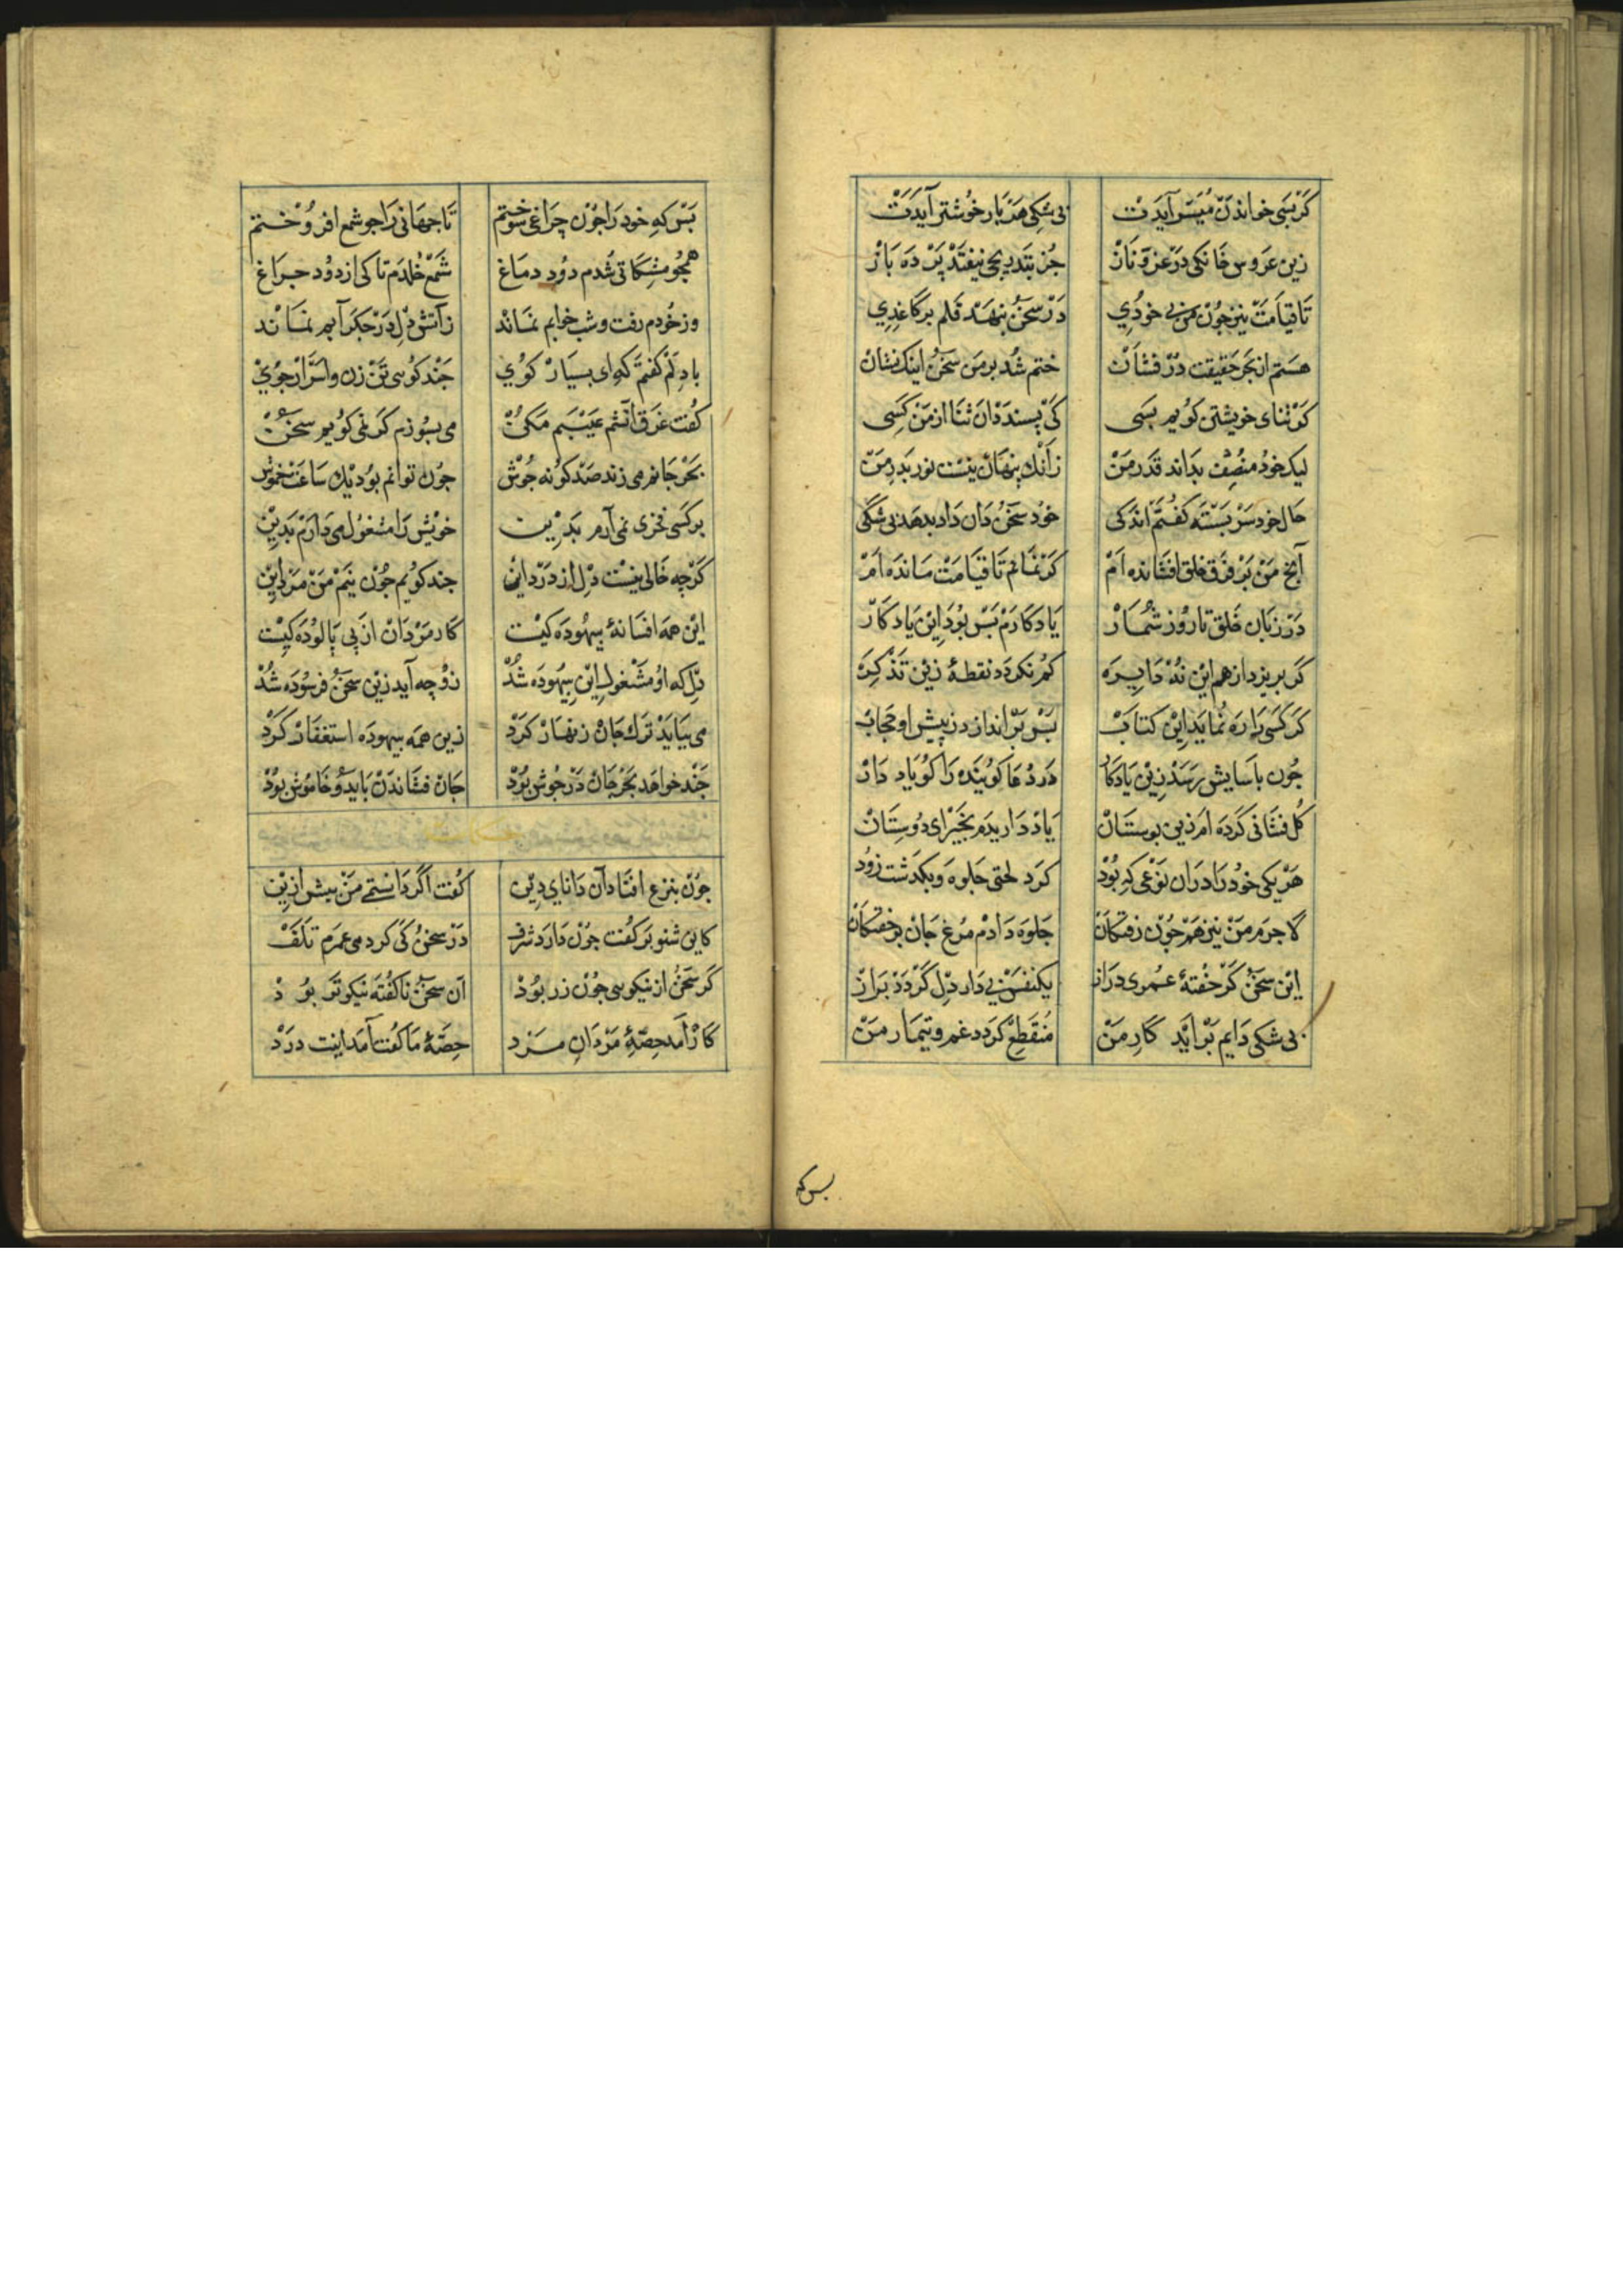 کر بسی خواندن میسر آیدت بی شکی هر بار خوشتر آیدت
زین عروس خانکی در عز و ناز جز بتدریجی نیفتد پرده باز
تا قیامت نیز چون من بی خودی در سخن ننهد قلم بر کاغذی
هستم از بحر حقیقت در فشان ختم شد بر من سخن اینک نشان
کر ثنای خویشتن کویم بسی کی پسندد آن ثنا از من کسی
لیک خود منصف بداند قدر من زانک پنهان نیست نور بدر من
حال خود سر بسته کفتم اندکی خود سخن دان داد بدهد بی شکی
آنچ من بر فرق خلق افشانده ام کر نمانم تا قیامت مانده ام
در زبان خلق تا روز شمار یاد کارم بس بود این یاد کار
کر بریزد از هم این نه دایره کم نکردد نقطهٔ زین تذکره
کر کسی را ره نماید این کتاب بس براندازد ز پیش او حجاب
چون باسایش رسد زین یادکار در دعا کوینده را کو یاد دار
کل فشانی کرده ام زین بوستان یاد داریدم بخیر ای دوستان
هر یکی خود را در آن نوعی که بود کرد لختی جلوه و بکذشت زود
لاجرم من نیز هم چون رفتکان جلوه دادم مرغ جان بر خفتکان
این سخن کر خفتهٔ عمری دراز یکنفس بیدار دل کردد براز
بی شکی دایم برآید کار من منقطع کردد غم و تیمار من
بس که
بس که خود را چون چراغی سوختم تا جهانی را جو شمع افروختم
همجو مشکاتی شدم دود دماغ شمع خلدم تا کی از دود جراغ
روزخوردم رفت و شب خوابم نماند ز آتش دل در جکر آبم نماند
با دلم کفتم که ای بسیار کوی جند کوی تن زن و اسرار جوی
کفت غرق آتشم عیبم مکن می بسوزم کر نمی کویم سخن
بحر جانم می زند صد کونه جوش چون توانم بود یک ساعت خموش
بر کسی فخری نمی آرم بدین خویش را مشغول می دارم بدین
کرچه خالی نیست دل از درد این جند کویم چون نیم من مرد این
این همه افسانهٔ بیهوده کیست کار مردان از پی پالوده کیست
دل که او مشغول این بیهوده شد زو چه آید زین سخن فرسوده شد
می بیاید ترک جان زنهار کرد زین همه بیهوده استغفار کرد
جند خواهد بحر جان در جوش بود جان فشاندن باید و خاموش بود
چون بنزع افتاد آن دانای دین کفت اکر دانستمی من بیش ازین
کاین شنو بر کفت چون دارد شرف در سخن کی کردمی عمرم تلف
کر سخن از نیکوی چون زر بود آن سخن ناکفته نیکوتر بود
کار آمد حصهٔ مردان مرد حصهٔ ما کفت آمد اینت درد